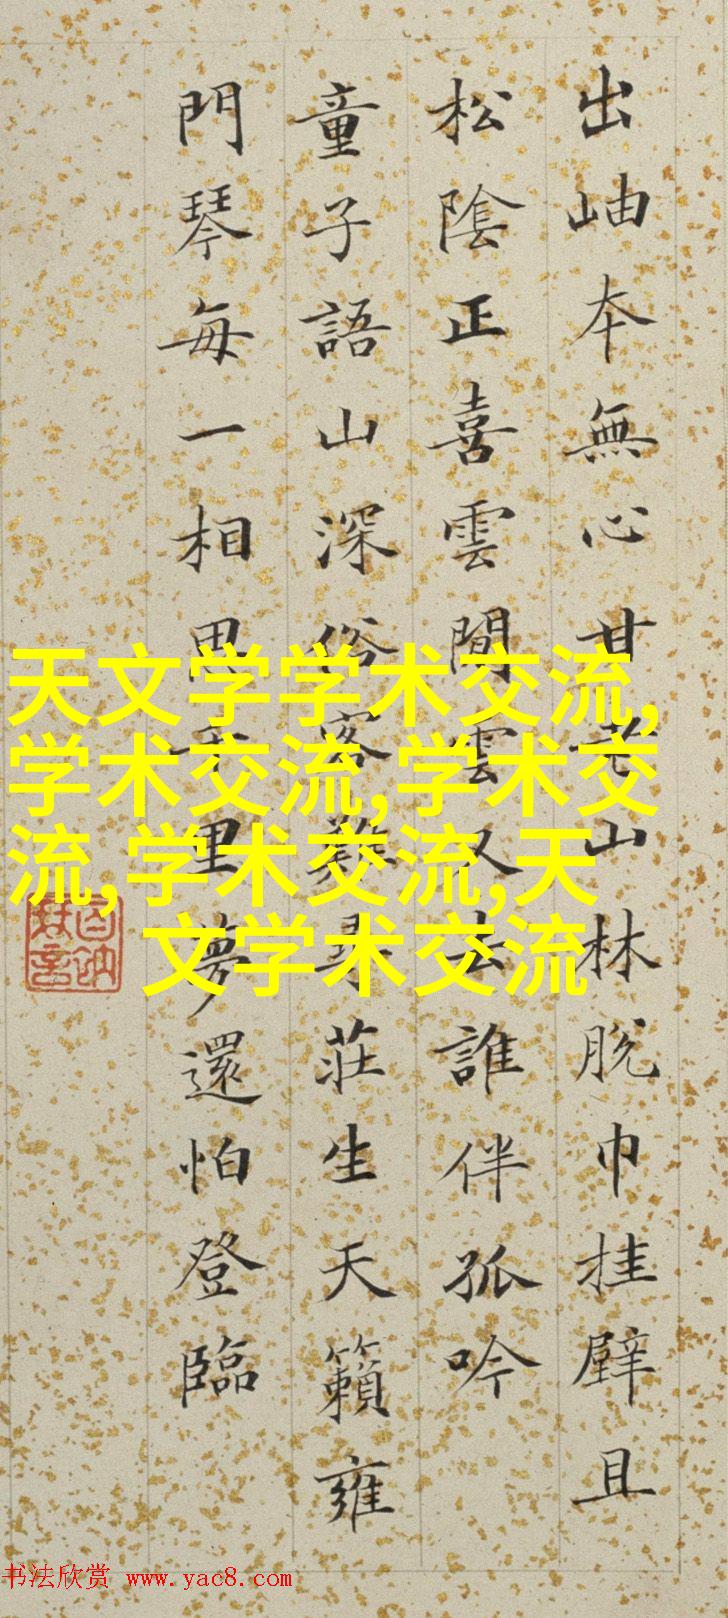 出岫本無心甘老山林脫巾挂壁且
松陰正喜雲閒雲又去誰伴孤吟
童子語山深俗客難尋莊生天籟雍
門琴每一相思千里夢還怕登臨
天文学学术交流,
学术交流,学术交
流,学术交流,天
文学术交流
书法欣赏 www.yac8.com